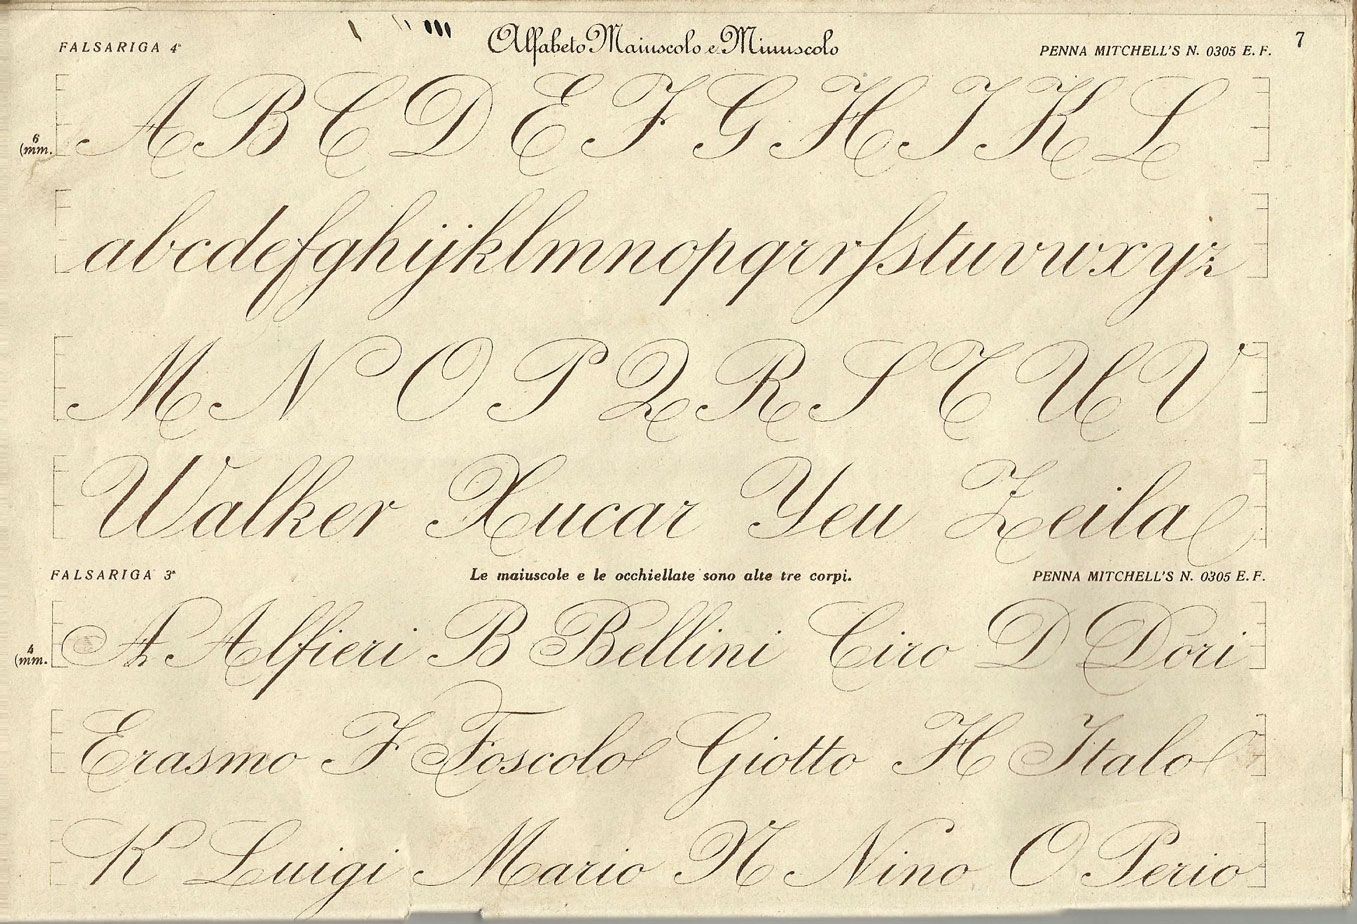 FALSARIGA 4ª Alfabeto Maiuscolo e Minuscolo PENNA MITCHELL'S N. 0305 E. F. 7
6 mm. A B C D E F G H I K L
a b c d e f g h i j k l m n o p q r r ſs t u v w x y z
M N O P Q R S T U V
Walker Xucar Yeu Zeila
FALSARIGA 3ª Le maiuscole e le occhiellate sono alte tre corpi. PENNA MITCHELL'S N. 0305 E. F.
4 mm. A Alfieri B Bellini Ciro D Dori
Erasmo F Foscolo Giotto H Italo
K Luigi Mario N Nino O Perio